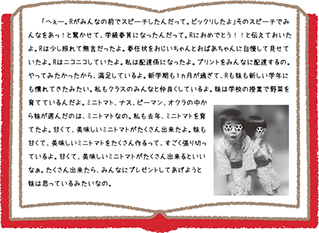 「へぇー。Rがみんなの前でスピーチしたんだって。ビックリしたよ♪そのスピーチでみ
んなをあっ!と驚かせて、学級委員になったんだって。Rにおめでとう!!と伝えておいた
よ。Rは少し照れて無言だったよ。委任状をおじいちゃんとおばあちゃんに自慢して見せて
いたよ。Rはニコニコしていたよ。私は配達係になったよ。プリントをみんなに配達するの。
やってみたかったから、満足しているよ。新学期も1ヵ月が過ぎて、Rも妹も新しい学年に
も慣れてきたみたい。私もクラスのみんなと仲良くしているよ。妹は学校の授業で野菜を
育てているんだよ。ミニトマト、ナス、ピーマン、オクラの中か
ら妹が選んだのは、ミニトマトなの。私も去年、ミニトマトを育
てたよ。甘くて、美味しいミニトマトがたくさん出来たよ。妹も
甘くて、美味しいミニトマトをたくさん作るって、すごく張り切っ
ているよ。甘くて、美味しいミニトマトがたくさん出来るといい
なぁ。たくさん出来たら、みんなにプレゼントしてあげようと
妹は思っているみたいなの。